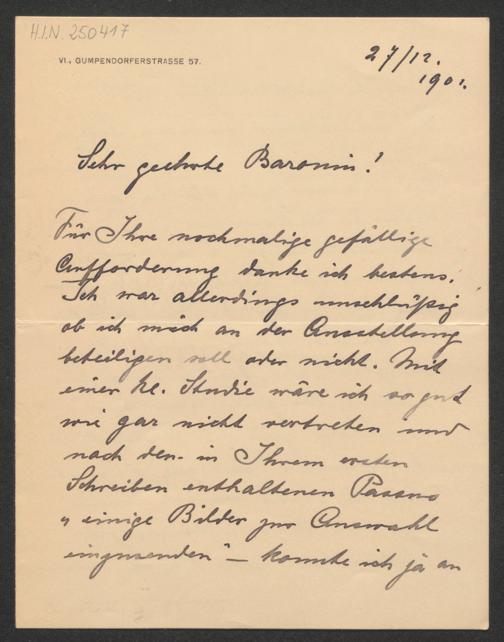 H.I.N. 250417
VI., GUMPENDORFERSTRASSE 57.
27/12.
1901.
Sehr geehrte Baronin!
Für Ihre nochmalige gefällige
Aufforderung danke ich bestens.
Ich war allerdings unschlüßig
ob ich mich an der Ausstellung
beteiligen soll oder nicht. Mit
einer kl. Studie wäre ich so gut
wie gar nicht vertreten und
nach den in Ihrem ersten
Schreiben enthaltenen Passus
„ einige Bilder zur Auswahl
einzusenden" – konnte ich ja an